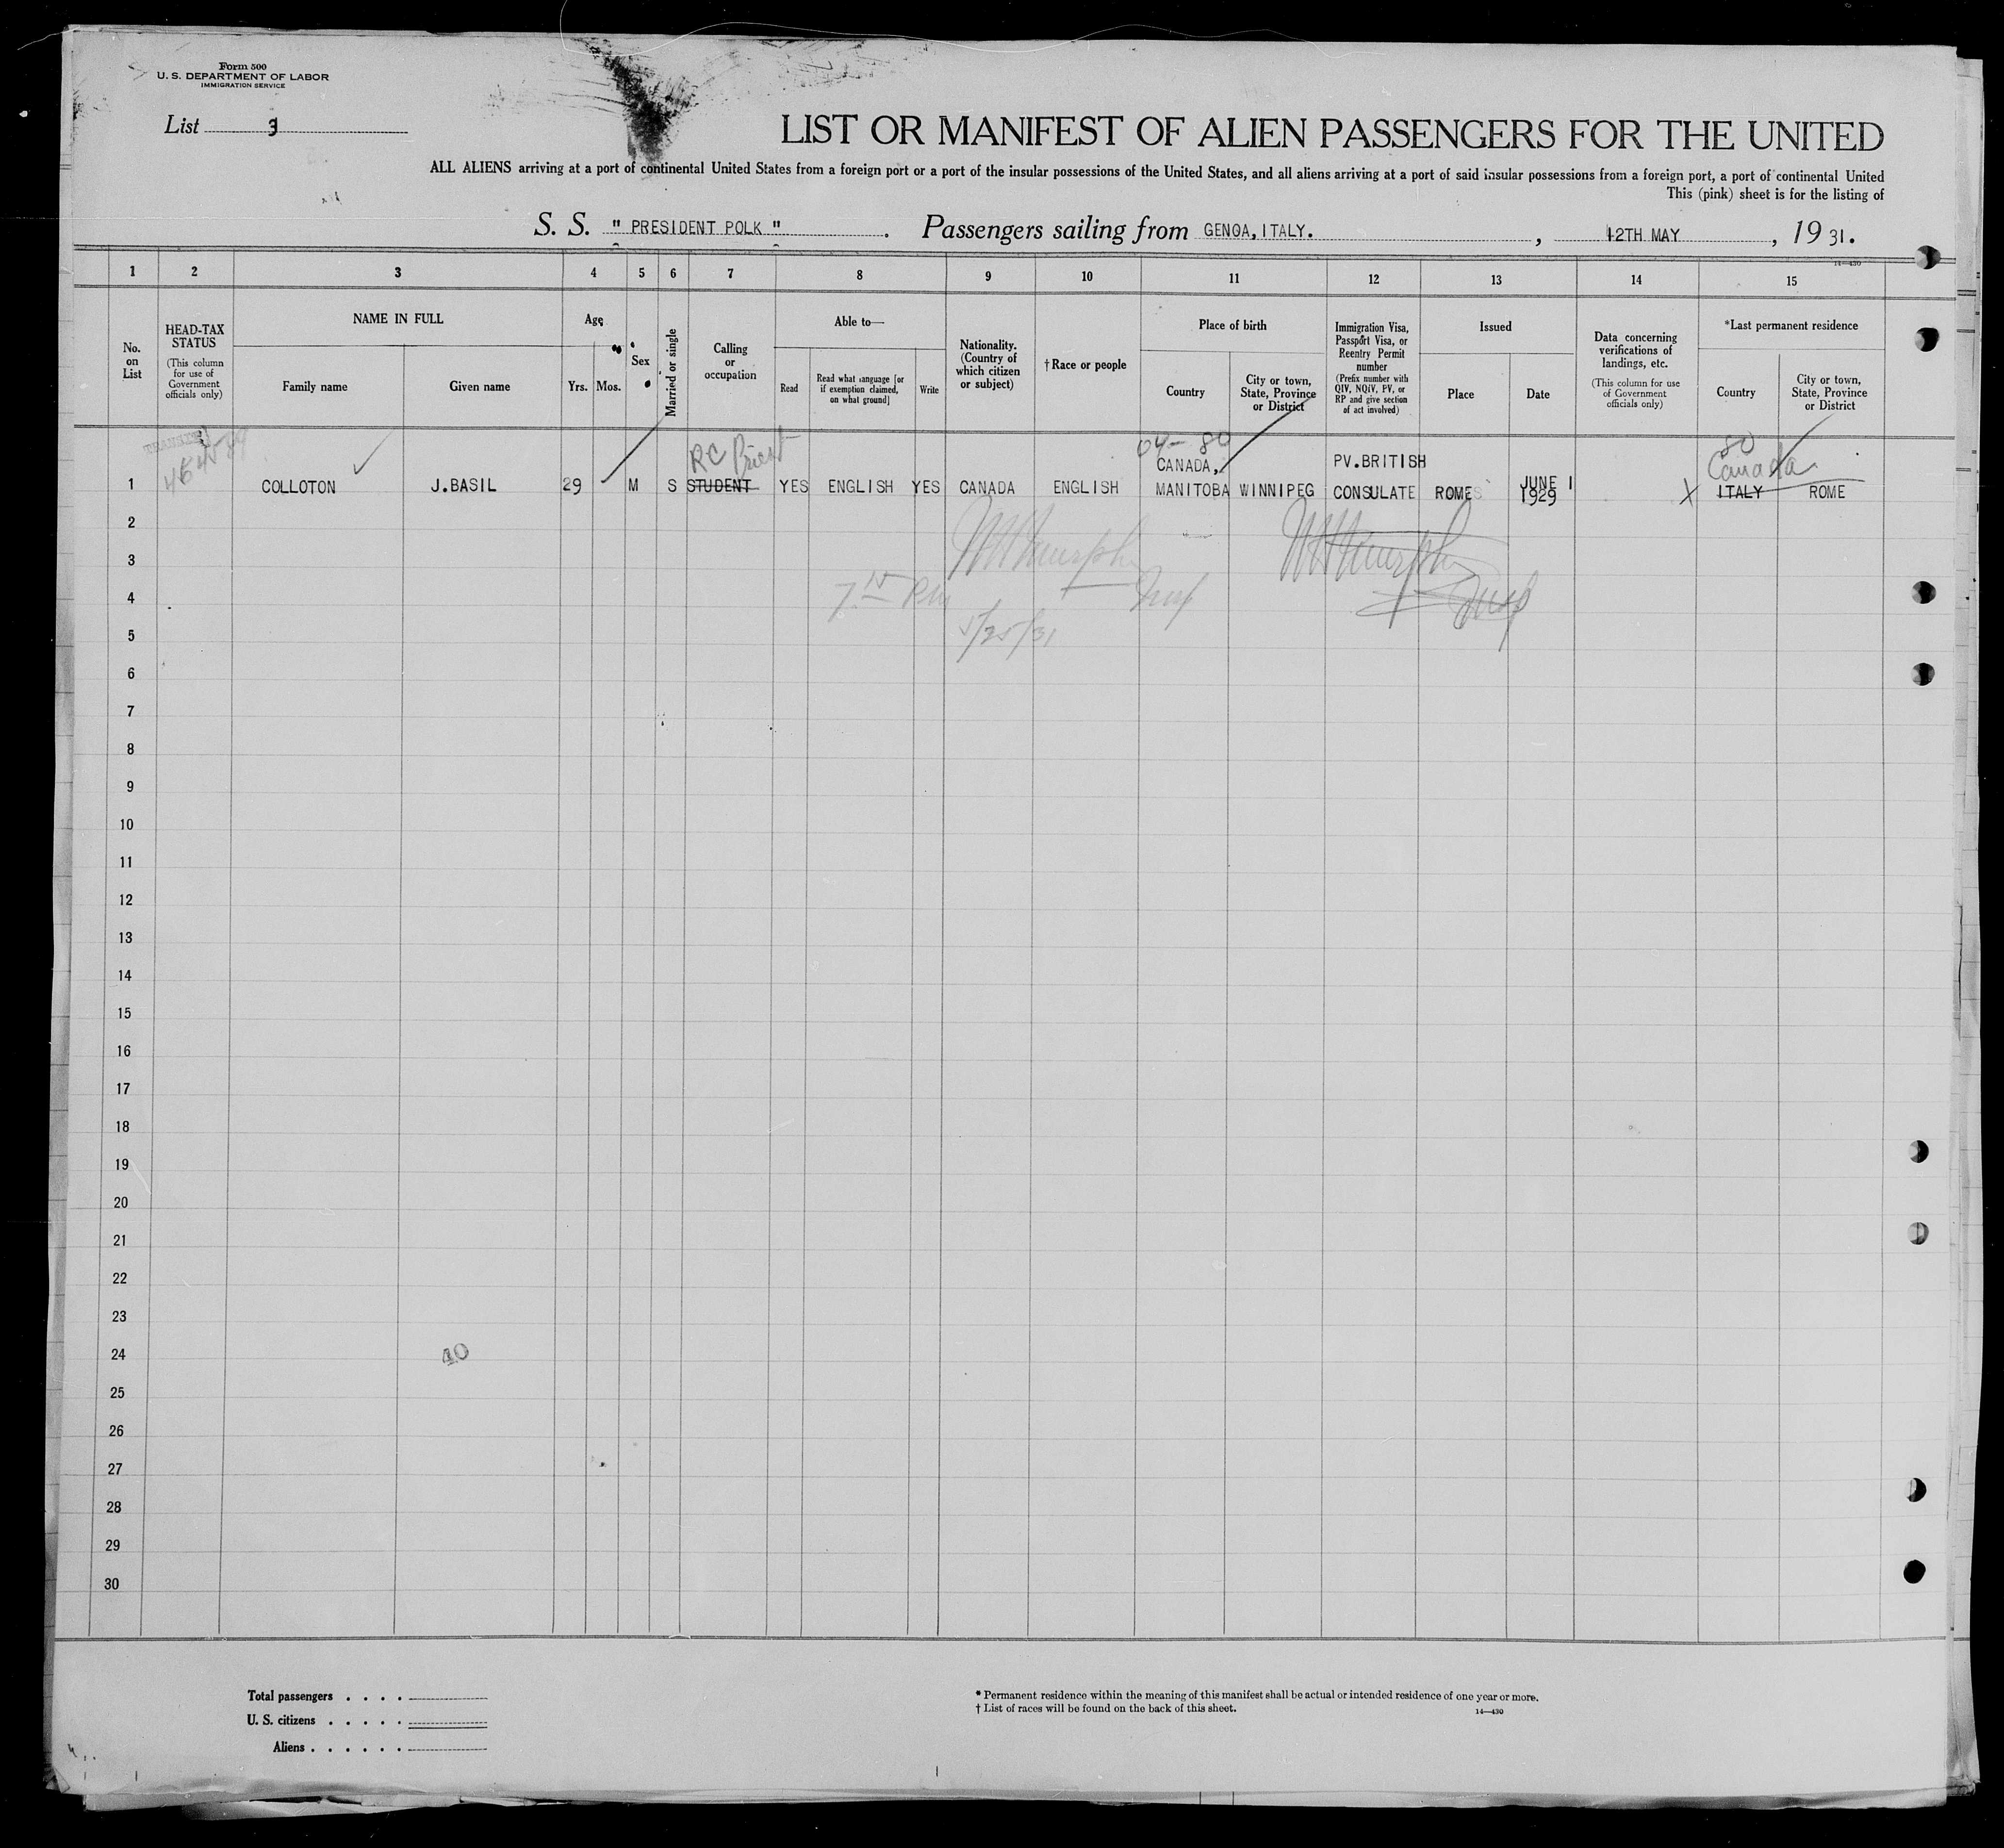 Form 500
U. S. DEPARTMENT OF LABOR
IMMIGRATION SERVICE
List 3
LIST OR MANIFEST OF ALIEN PASSENGERS FOR THE UNITED
ALL ALIENS arriving at a port of continental United States from a foreign port or a port of the insular possessions of the United States, and all aliens arriving at a port of said insular possessions from a foreign port, a port of continental United
This (pink) sheet is for the listing of
S. S. " PRESIDENT POLK " . Passengers sailing from GENOA, ITALY. , 12TH MAY , 19 31.
14—430
1 2 3 4 5 6 7 8 9 10 11 12 13 14 15
No. on List
HEAD-TAX STATUS
(This column for use of Government officials only)
NAME IN FULL
Family name
Given name
Age
Yrs.
Mos.
Sex
Married or single
Calling or occupation
Able to—
Read
Read what language [or if exemption claimed, on what ground]
Write
Nationality. (Country of which citizen or subject)
† Race or people
Place of birth
Country
City or town, State, Province or District
Immigration Visa, Passport Visa, or Reentry Permit number
(Prefix number with QIV, NQIV, PV, or RP and give section of act involved)
Issued
Place
Date
Data concerning verifications of landings, etc.
(This column for use of Government officials only)
*Last permanent residence
Country
City or town, State, Province or District
TRANSIT
RC Priest
04— 80
80
CANADA,
PV.BRITISH
Canada
1 COLLOTON J.BASIL 29 M S STUDENT YES ENGLISH YES CANADA ENGLISH MANITOBA WINNIPEG CONSULATE ROME JUNE 1 1929 X ITALY ROME
2
3
4
5
5/25/31
6
7
8
9
10
11
12
13
14
15
16
17
18
19
20
21
22
23
24
40
25
26
27
28
29
30
Total passengers . . . .
U. S. citizens . . . . .
Aliens . . . . . .
* Permanent residence within the meaning of this manifest shall be actual or intended residence of one year or more.
† List of races will be found on the back of this sheet.
14—430